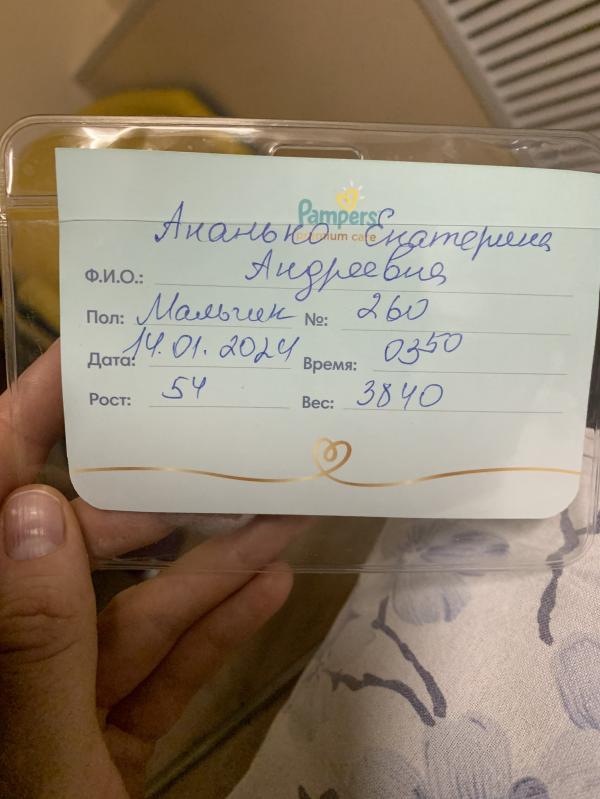 Pampers
premium care
Ананько Екатерина
Ф.И.О.: Андреевна
Пол: Мальчик №: 260
Дата: 14.01.2024 Время: 03 50
Рост: 54 Вес: 3840